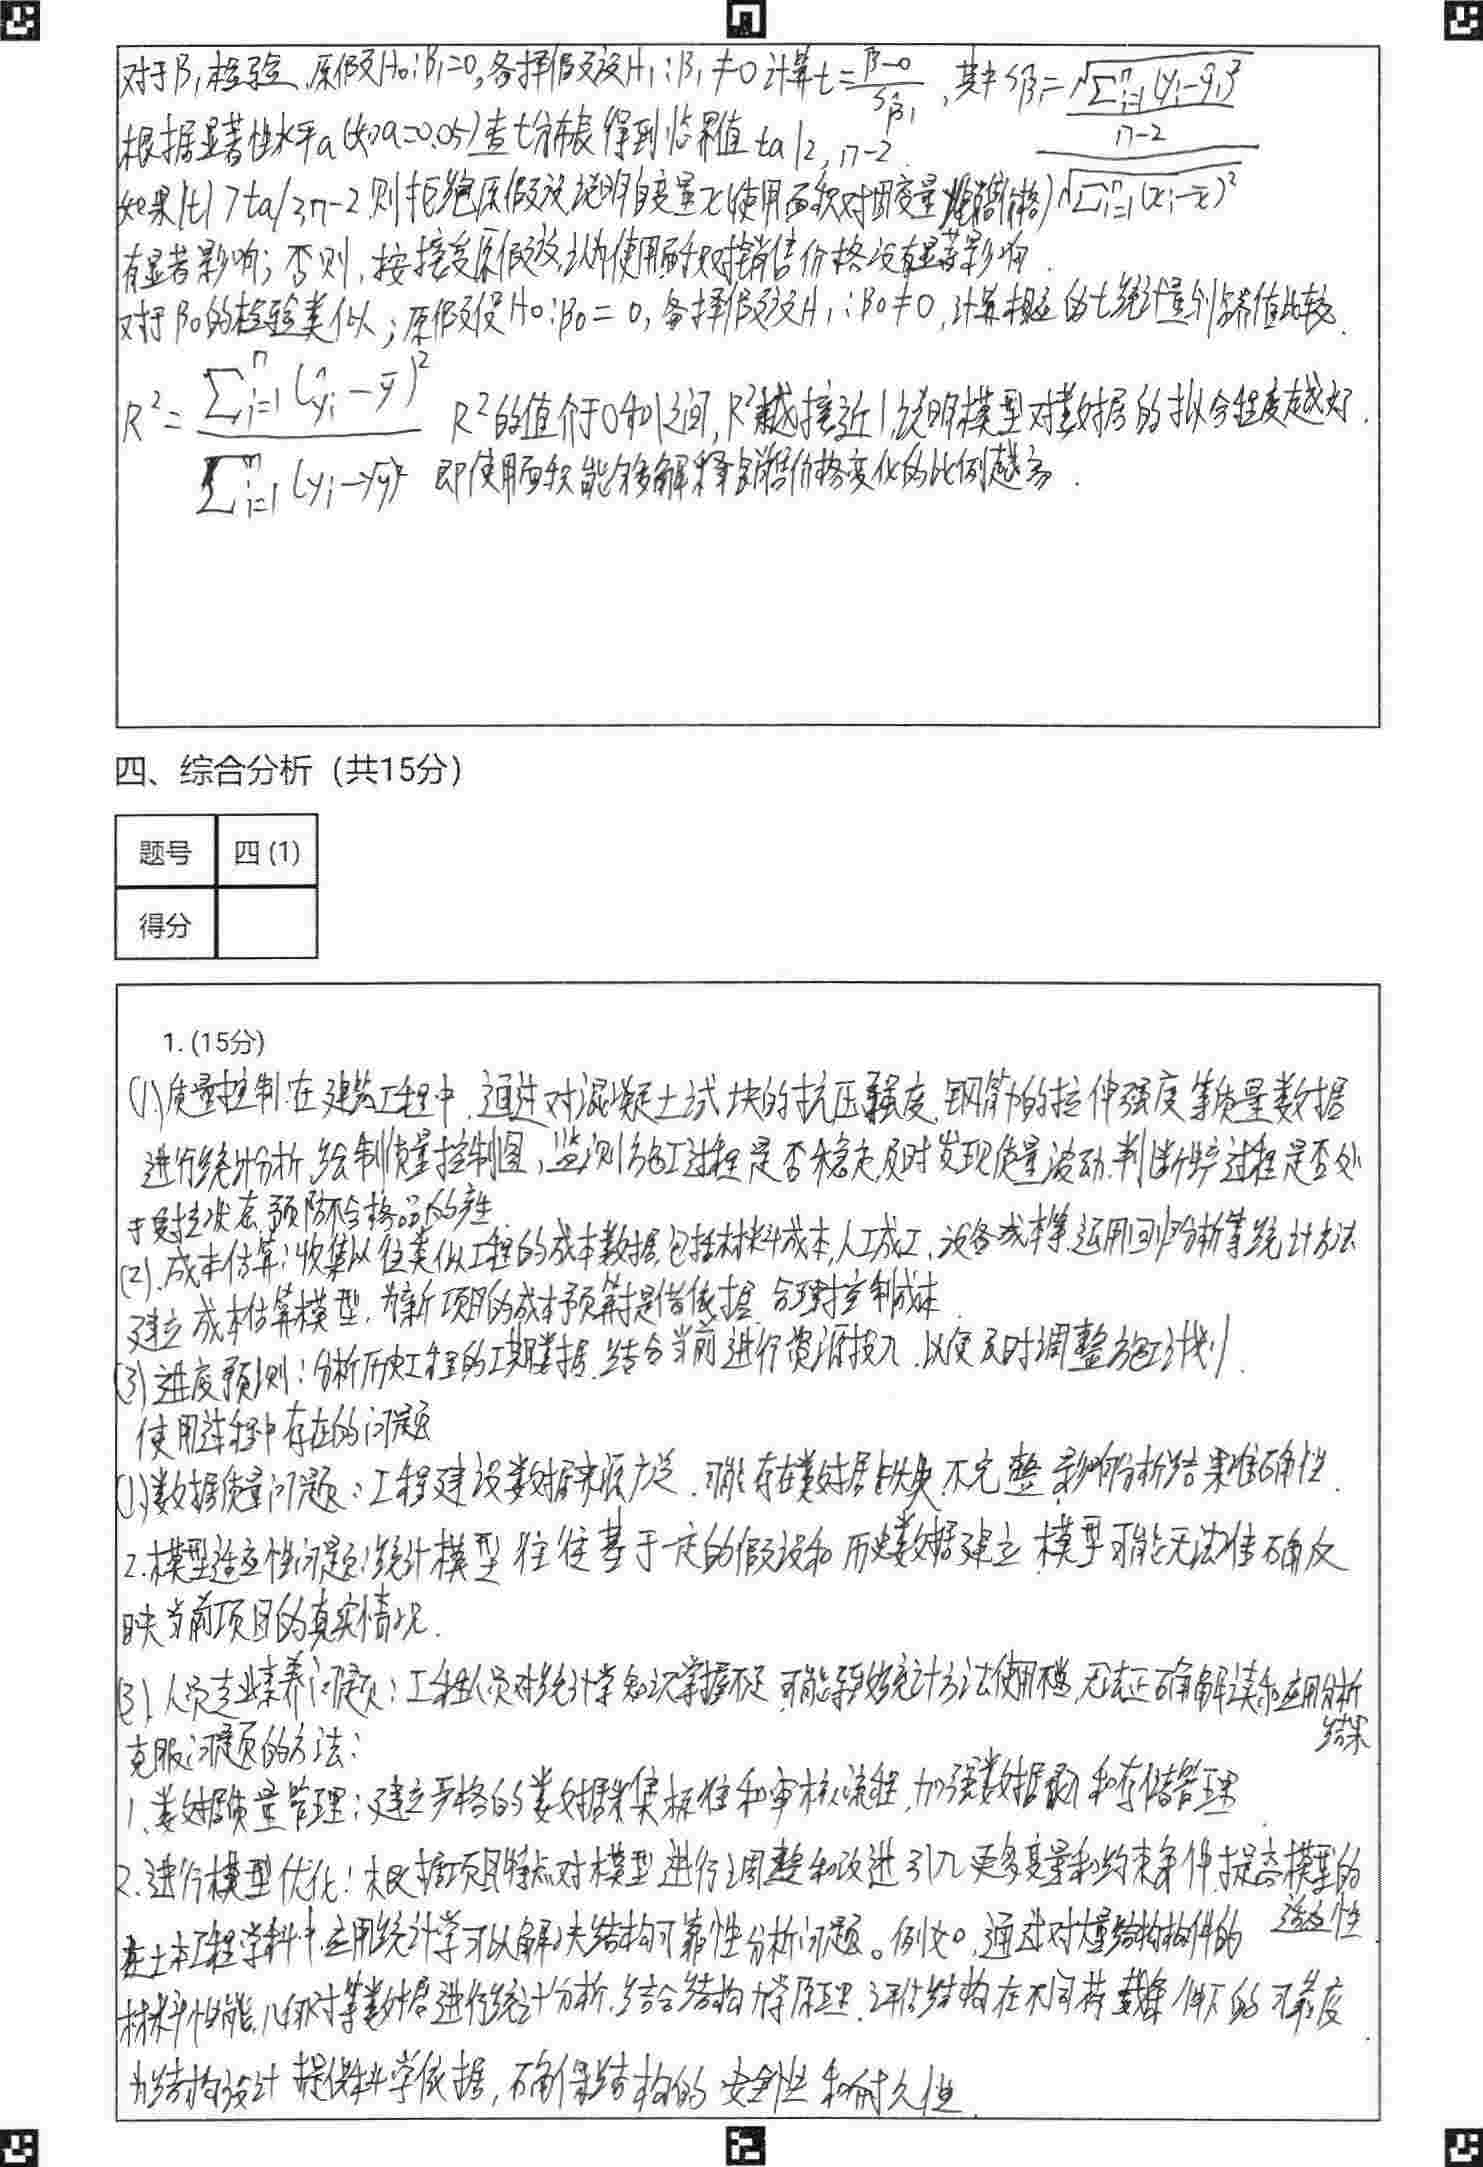 对于β₁检验,原假设H₀:β₁=0,备择假设H₁:β₁≠0 计算t=(β-0)/Sβ̂₁,其中Sβ̂₁=(√(Σⁿᵢ₌₁(yᵢ-ŷᵢ)²)/(n-2))/√(Σⁿᵢ₌₁(xᵢ-x̄)²)
根据显著性水平a(如a=0.05)查t分布表得到临界值ta/2,n-2.
如果|t|>ta/2n-2则拒绝原假设说明自变量x(使用面积)对因变量(销售价格)
有显著影响;否则,接受原假设,认为使用面积对销售价格没有显著影响.
对于β₀的检验类似;原假设H₀:β₀=0,备择假设H₁:β₀≠0,计算相应的t统计量与临界值比较.
R²=Σⁿᵢ₌₁(ŷᵢ-ȳ)²/Σⁿᵢ₌₁(yᵢ-ȳ)² R²的值介于0和1之间,R²越接近1,说明模型对数据的拟合程度越好.
即使用面积能够解释销售价格变化的比例越高.
四、综合分析(共15分)
题号 四(1)
得分
1.(15分)
(1)、质量控制:在建筑工程中,通过对混凝土试块的抗压强度,钢筋的拉伸强度等质量数据
进行统计分析,绘制质量控制图,监测施工过程是否稳定,及时发现质量波动.判断生产过程是否处
于受控状态,预防不合格品的产生.
(2).成本估算:收集以往类似工程的成本数据,包括材料成本,人工成工,设备成本等,运用回归分析等统计方法
建立成本估算模型.为新项目的成本预算提供依据.合理控制成本.
(3)进度预测:分析历史工程的工期数据.结合当前进行资源投入.以便及时调整施工计划.
使用过程中存在的问题
(1)、数据质量问题:工程建设数据来源广泛.可能存在数据缺失,不完整,影响分析结果准确性.
2.模型适应性问题:统计模型往往基于一定的假设和历史数据建立,模型可能无法准确反
映当前项目的真实情况.
(3).人员专业素养问题:工程人员对统计学知识掌握不足,可能导致统计方法使用不当,无法正确解读和应用分析
结果
克服问题的方法:
1、数据质量管理:建立严格的数据采集标准和审核流程,加强数据录入和存储管理.
2.进行模型优化:根据项目特点对模型进行调整和改进,引入更多变量和约束条件,提高模型的
适应性.
在土木工程学科中,应用统计学可以解决结构可靠性分析问题。例如,通过对大量结构构件的
材料性能,几何尺寸等数据进行统计分析,结合结构力学原理,评估结构在不同荷载条件下的可靠度.
为结构设计提供科学依据,确保结构的安全性和耐久性.